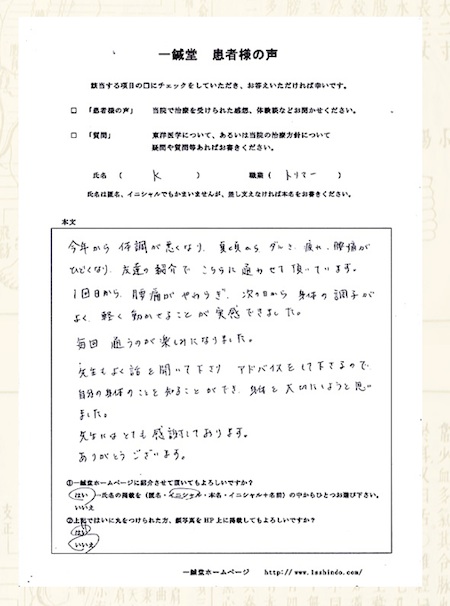 一鍼堂 患者様の声
該当する項目の口にチェックをしていただき、お答えいただければ幸いです。
□ 「患者様の声」 当院で治療を受けられた感想、体験談などお聞かせください。
□ 「質問」 東洋医学について、あるいは当院の治療方針について
疑問や質問等あればお書きください。
氏名 ( K ) 職業 ( トリマー )
氏名は匿名、イニシャルでもかまいませんが、差し支えなければ本名をお書きください。
本文
今年から 体調が悪くなり、夏頃から、ダルさ、疲れ、腰痛が
ひどくなり、友達の紹介で こちらに通わせて頂いています。
1回目から、腰痛がやわらぎ、次の日から 身体の調子が
よく、軽く動かせることが実感できました。
毎回 通うのが楽しみになりました。
先生もよく話を聞いて下さり アドバイスをして下さるので
自分の身体のことを知ることができ、身体を大切にしようと思い
ました。
先生にはとても感謝しております。
ありがとうございます。
①一鍼堂ホームページに紹介させて頂いてもよろしいですか？
はい ―氏名の掲載を（匿名・イニシャル・本名・イニシャル+名前）の中からひとつお選び下さい。
いいえ
②上記ではいに丸をつけられた方、顔写真をHP上に掲載してもよろしいですか？
はい
いいえ
一鍼堂ホームページ http://www.1sshindo.com/